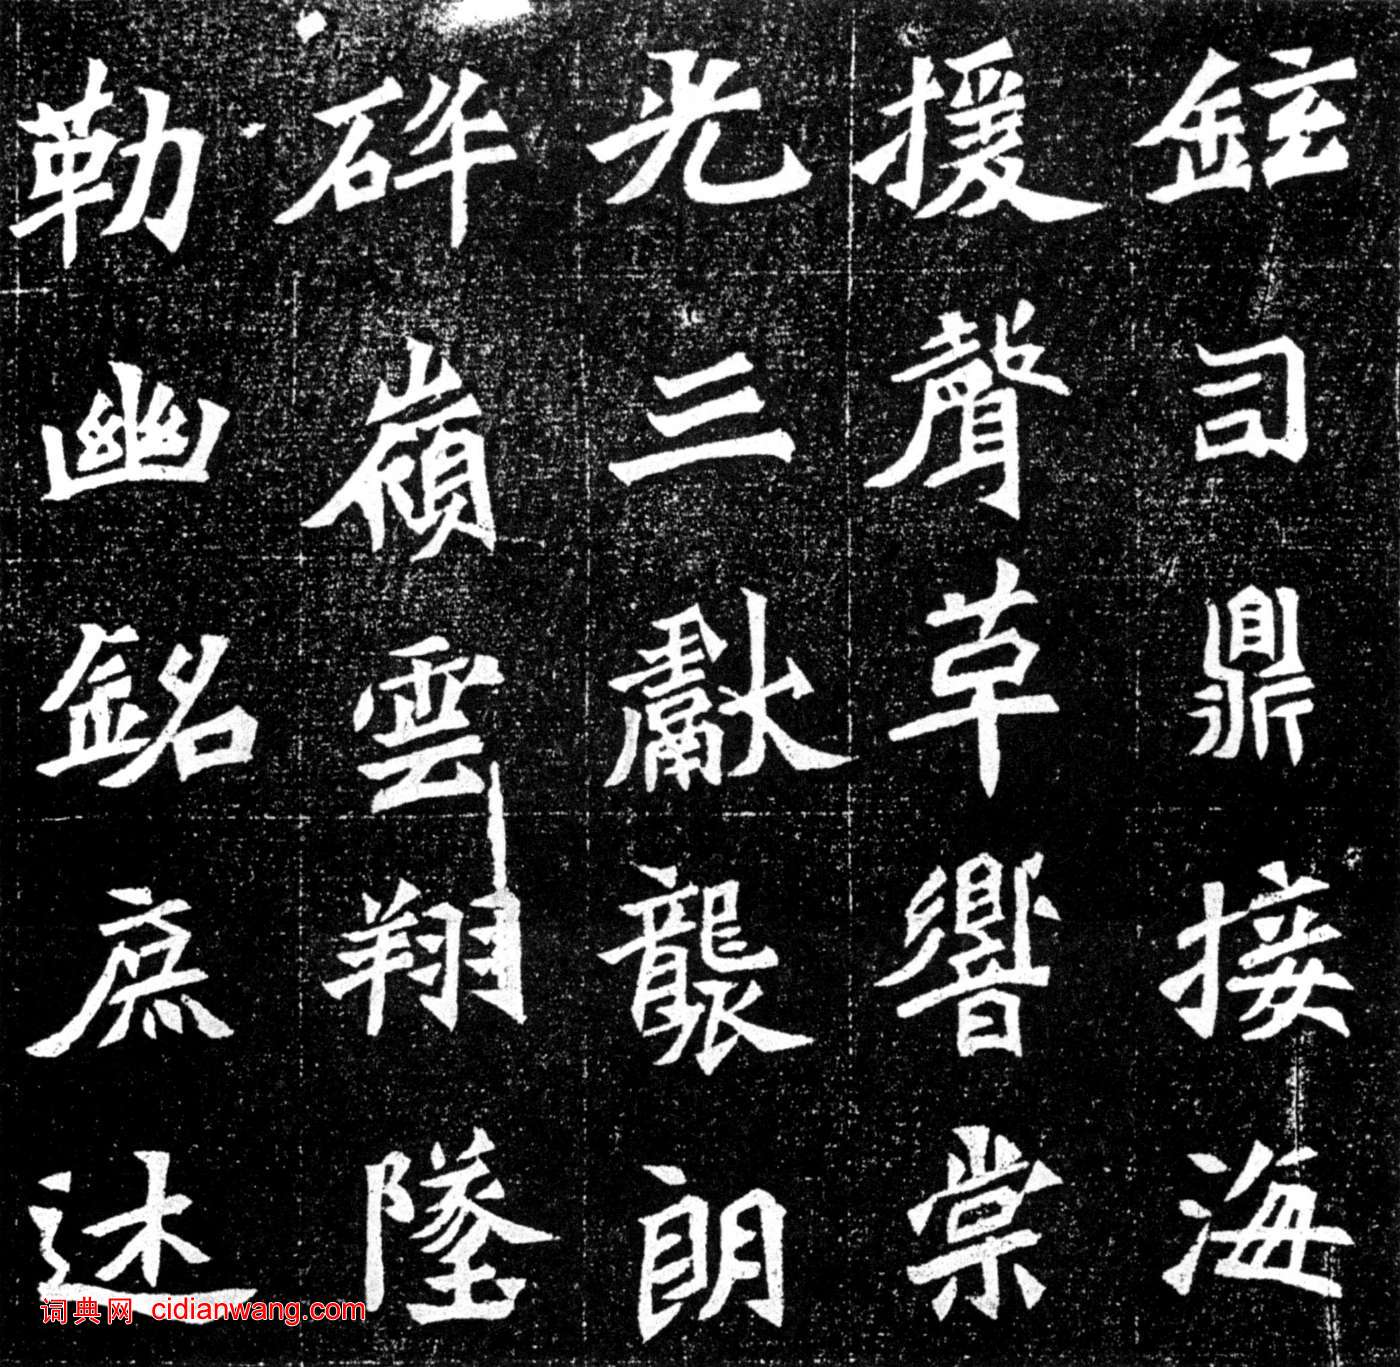 鉉司鼎接海
援聲草響棠
光三獻襲朗
碎嶺雲翔墜
勒幽銘庶述
词典网 cidianwang.com